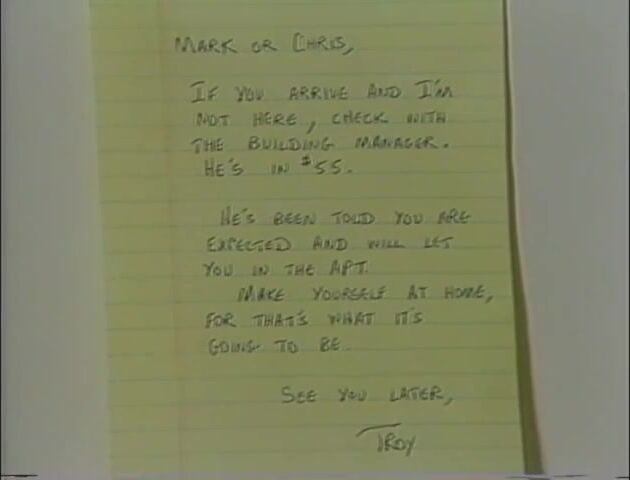 MARK OR CHRIS,
IF YOU ARRIVE AND I'M
NOT HERE, CHECK WITH
THE BUILDING MANAGER.
HE'S IN #55.
HE'S BEEN TOLD YOU ARE
EXPECTED AND WILL LET
YOU IN THE APT.
MAKE YOURSELF AT HOME,
FOR THAT'S WHAT IT'S
GOING TO BE.
SEE YOU LATER,
TROY